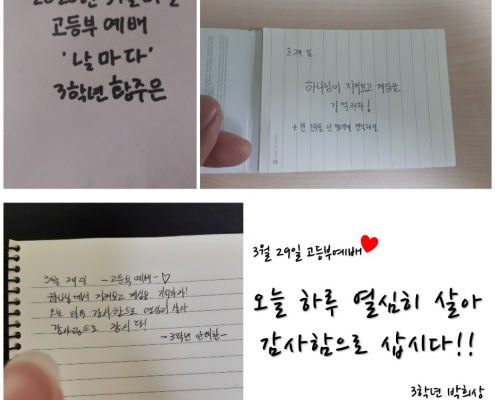 고등부 예배
'날마다'
3학년 함주은
3.29.일.
하나님이 지켜보고 계심을
기억하자!
3월 29일 -고등부 예배-♡
하나님께서 지켜보고 계심을 기억하자!
오늘 하루 감사함으로 열심히 살아
감사함으로 삽시다!
3월 29일 고등부예배
오늘 하루 열심히 살아
감사함으로 삽시다!!
3학년 박희상